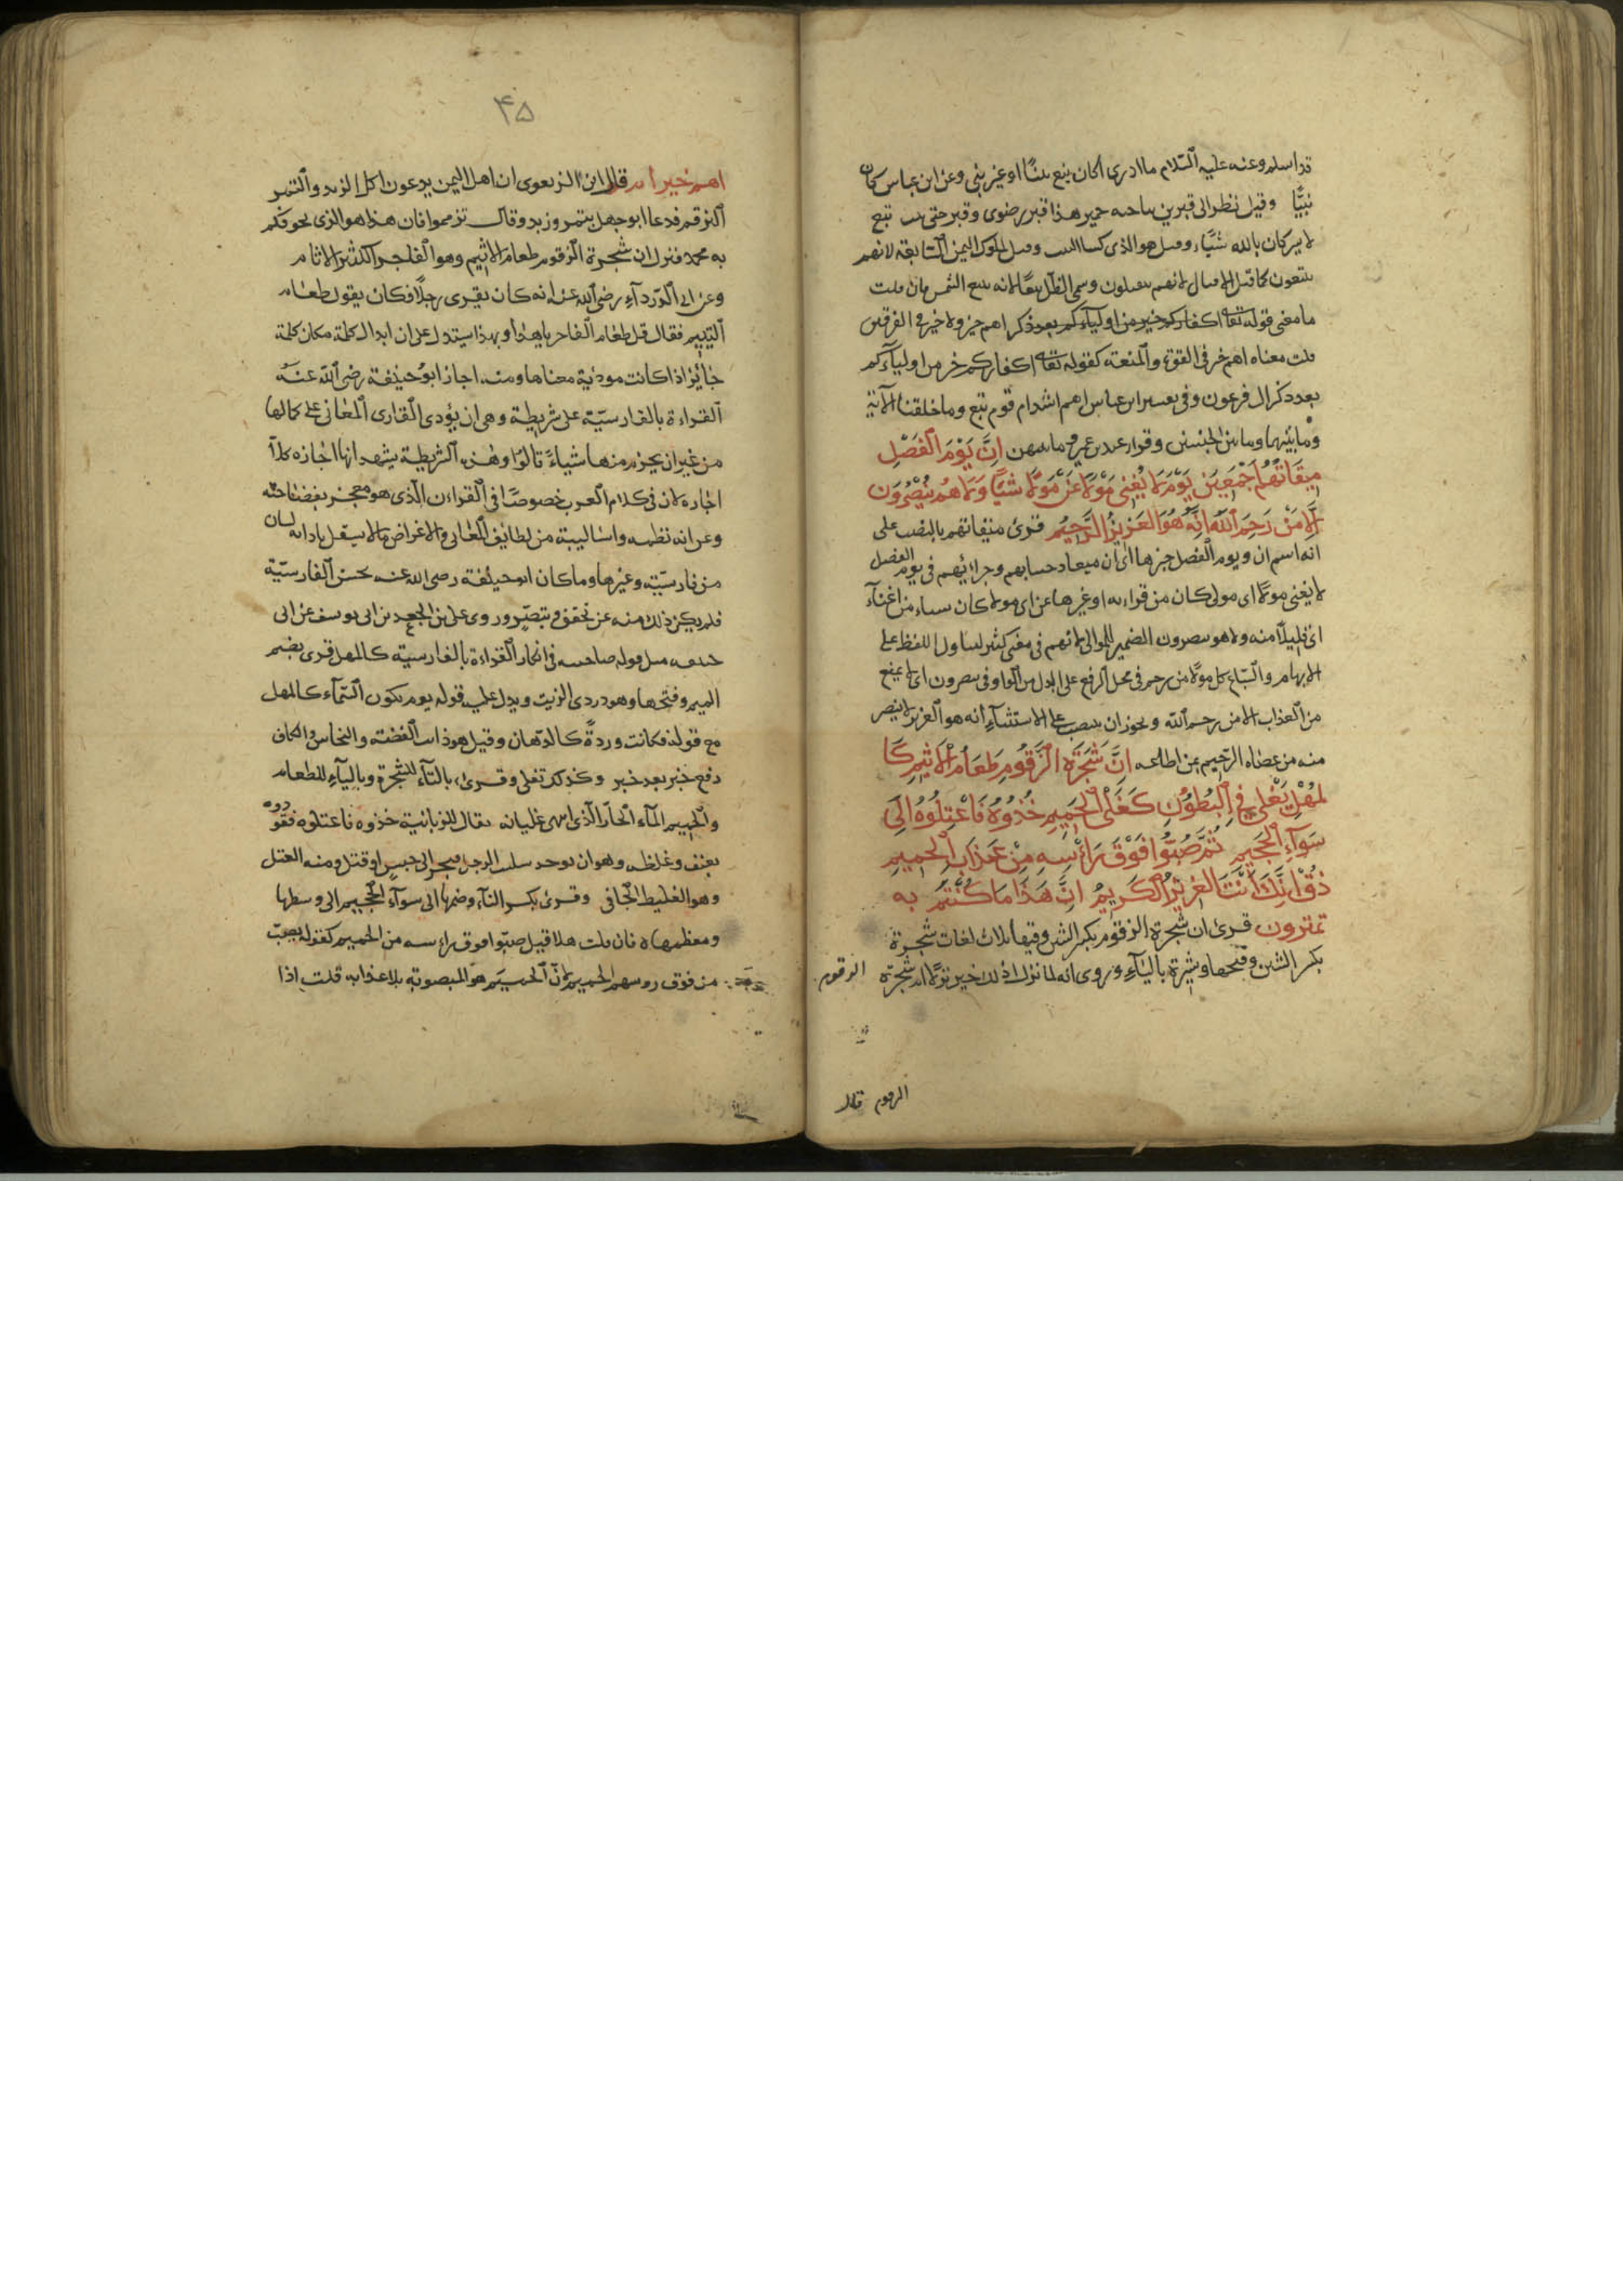 قد اسلم وعنه عليه السلام ما ادرى اكان تبع نبيًّا او غير نبى وعن ابن عباس كان
نبيًّا وقيل نظر الى قبرين بناحية حمير هذا قبر رضوى وقبر حبى بنت تبع
لا يشركان بالله شيًّا وقيل هو الذى كسا البيت وقيل لملوك اليمن التبابعة لانهم
يتبعون كما قيل الاقيال لانهم يتقيلون وسمى الظل تبعًا لانه يتبع الشمس فان قلت
ما معنى قوله تعالى اكفاركم خير من اوليآءكم بعد ذكر اهم خير ولا خير فى الفريقين
قلت معناه اهم خير فى القوة والمنعة كقوله تعالى اكفاركم خير من اوليآءكم
بعد ذكر ال فرعون وفى تفسير ابن عباس اهم اشد ام قوم تبع وما خلقنا الآية
وما بينهما وما بين الجنسين وقرا عبيد بن عمير وما بينهن اِنَّ يَوْمَ الْفَصْلِ
مِيقَاتُهُمْ اَجْمَعِينَ يَوْمَ لَا يُغْنِى مَوْلًا عَنْ مَوْلًا شَيْئًا وَلَا هُمْ يُنْصَرُونَ
اِلَّا مَنْ رَحِمَ اللّٰهُ اِنَّهُ هُوَ الْعَزِيزُ الرَّحِيمُ قرئ ميقاتهم بالنصب على
انه اسم ان ويوم الفصل خبرها اى ان ميعاد حسابهم وجزائهم فى يوم الفصل
لا يغنى مولًا اى مولى كان من قرابة او غيرها عن اى مولا كان شياء من اغنآء
اى قليلًا منه ولا هم ينصرون الضمير للموالى لانهم فى معنى كثير لتناول اللفظ على
الابهام والشياع كل مولًا من رحم فى محل الرفع على البدل من الواو فى ينصرون اى لا يمنع
من العذاب الا من رحم الله ويجوز ان ينتصب على الاستثنآء انه هو العزيز لا ينصر
منه من عصاه الرحيم لمن اطاعه اِنَّ شَجَرَةَ الزَّقُّومِ طَعَامُ الْاَثِيمِ كَا
لْمُهْلِ يَغْلِى فِى الْبُطُونِ كَغَلْىِ الْحَمِيمِ خُذُوهُ فَاعْتِلُوهُ اِلَى
سَوَآءِ الْجَحِيمِ ثُمَّ صُبُّوا فَوْقَ رَأْسِهِ مِنْ عَذَابِ الْحَمِيمِ
ذُقْ اِنَّكَ اَنْتَ الْعَزِيزُ الْكَرِيمُ اِنَّ هَذَا مَا كُنْتُمْ بِهِ
تمترون قرئ ان شجرة الزقوم بكسر الشين وفيها ثلاث لغات شجرة
بكسر الشين وفتحها وشيرة باليآء وروى انه لما نزل اذلك خير نزلًا ام شجرة الزقوم
الزقوم قال
۴۵
اهم خير ام قال ابن الزبعرى ان اهل اليمن يدعون اكل الزبد والتمر
التزقم فدعا ابوجهل بتمر وزبد وقال تزقموا فان هذا هو الذى يخوفكم
به محمد فنزل ان شجرة الزقوم طعام الاثيم وهو الفاجر الكثير الاثام
وعن ابى الدردآء رضى الله عنه انه كان يقرى رجلًا فكان يقول طعام
اليتيم فقال قل طعام الفاجر يا هذا وبهذا يستدل على ان ابدال كلمة مكان كلمة
جائز اذا كانت مودية معناها ومنه اجاز ابوحنيفة رضى الله عنه
القراءة بالفارسيّة على شريطة وهى ان يؤدى القارى المعانى على كمالها
من غير ان يخرم منها شياءً قالوا وهذه الشريطة يشهد انها اجازة كلا
اجازة لان فى كلام العرب خصوصًا فى القراءن الذى هو معجز بفصاحته
وغرابة نظمه واساليبه من لطايف المعانى والاغراض ما لا يستقل بادايه لسان
من فارسيّة وغيرها وما كان ابوحنيفة رضى الله عنه يحسن الفارسيّة
فلم يكن ذلك منه عن تحقق وتبصّر وروى على بن الجعد عن ابى يوسف عن ابى
حنيفه مثل قول صاحبيه فى انكار القراءة بالفارسية كالمهل قرى بضم
الميم وفتحها وهو دردى الزيت ويدل عليه قوله يوم تكون السّمآء كالمهل
مع قوله فكانت وردةً كالدّهان وقيل هو ذايب الفضة والنحاس والكاف
رفع خبر بعد خبر وكذلك تغلى وقرئ بالتآء للشجرة وباليآء للطعام
والحميم المآء الحارّ الذى انتهى غليانه يقال للزبانية خذوه فاعتلوه فقودوه
بعنف وغلظة وهو ان يوخذ بتلبيب الرجل فيجر الى حبس او قتل ومنه العتل
وهو الغليظ الجافى وقرئ بكسر التآء وضمها الى سوآء الجحيم الى وسطها
ومعظمها فان قلت هلا قيل صبّوا فوق راءسه من الحميم كقوله يصبّ
من فوق روسهم الحميم لانّ الحميم هو المصبوب لا عذابه قلت اذا